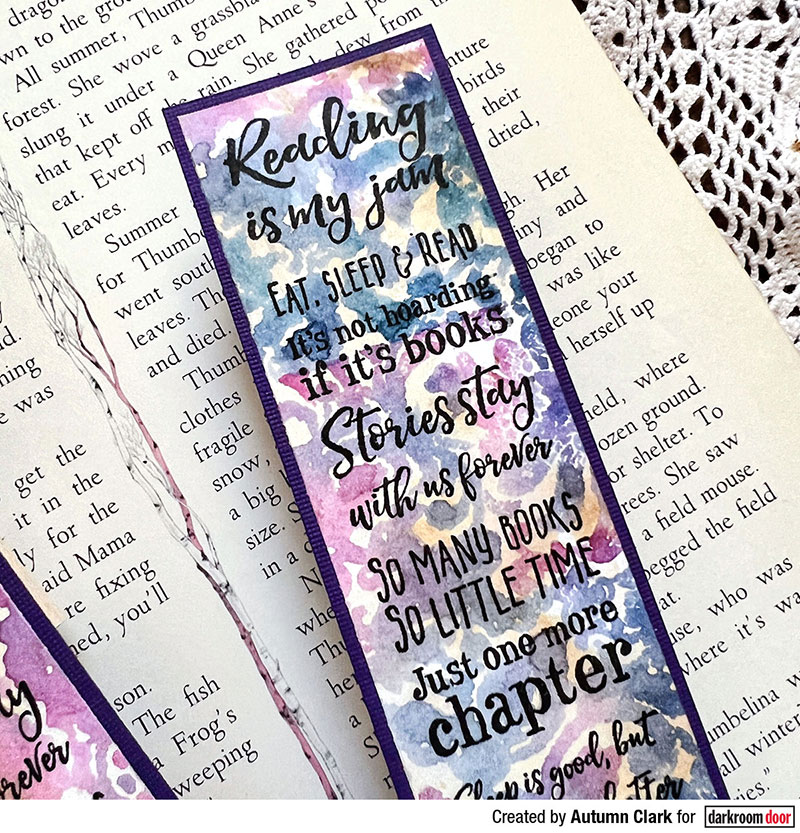 drago
wn to the grou
All summer, Thumb
forest. She wove a grassbla
slung it under a Queen Anne's
that kept off the rain. She gathered po
eat. Every m
leaves.
Summer
for Thumb
went south
leaves. Th
and died.
Thumb
clothes
fragile
snow,
a big
size. S
in a
from the
dew from
nture
birds
their
dried,
gh. Her
iny and
began to
was like
eone your
herself up
field, where
ozen ground.
or shelter. To
rees. She saw
a field mouse.
begged the field
at.
use, who was
where it's wa
umbelina w
all winter
ries."
ning
e was
get the
it in the
ly for the
aid Mama
re fixing
ned, you'll
son.
The fish
a Frog's
weeping
Reading
is my jam
EAT, SLEEP & READ
It's not hoarding
if it's books
Stories stay
with us forever
SO MANY BOOKS
SO LITTLE TIME
Just one more
chapter
Sleep is good, but
ay
orever
Created by Autumn Clark for darkroom door